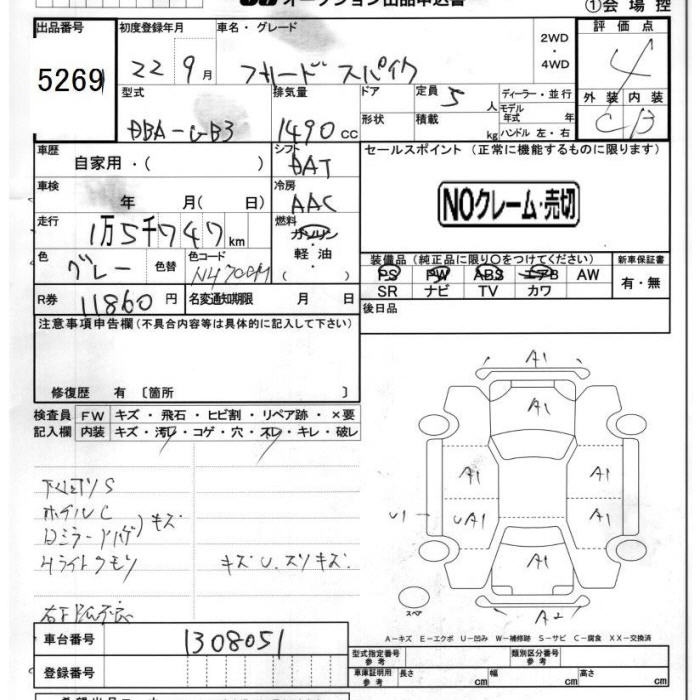 オークション出品申込書
①会場控
出品番号 初度登録年月 車名・グレード 2WD・4WD 評価点
5269 22 9月 フリードスパイク 4
型式 排気量 ドア 定員 5人 ディーラー・並行 外装 内装
DBA-GB3 1490cc 形状 積載 kg モデル年式 年 ハンドル 左・右 C B
車歴 自家用・( ) シフト DAT セールスポイント(正常に機能するものに限ります)
車検 年 月(日) 冷房 AAC NOクレーム・売切
走行 1万5千747km 燃料 ガソリン・軽油・( )
色 グレー 色替 色コード 装備品(純正品に限り○をつけてください) 新車保証書
PS PW ABS エアB AW 有・無
R券 11860円 名変通知期限 月 日 SR ナビ TV カワ
注意事項申告欄(不具合内容等は具体的に記入して下さい) 後日品
修復歴 有〔箇所 〕
検査員 FW キズ・飛石・ヒビ割・リペア跡・×要
記入欄 内装 キズ・汚レ・コゲ・穴・スレ・キレ・破レ
A1
A1
A1 A1
U1 UA1 A1
A1
A2
下回りS
ホイルC
ロミラー キズ
Hライトクモリ キズU.スリキズ.
スペア
A-キズ E-エクボ U-凹み W-補修跡 S-サビ C-腐食 XX-交換済
車台番号 1308051
型式指定番号 参考 類別区分番号 参考
登録番号 車庫証明用 参考 長さ cm 幅 cm 高さ cm